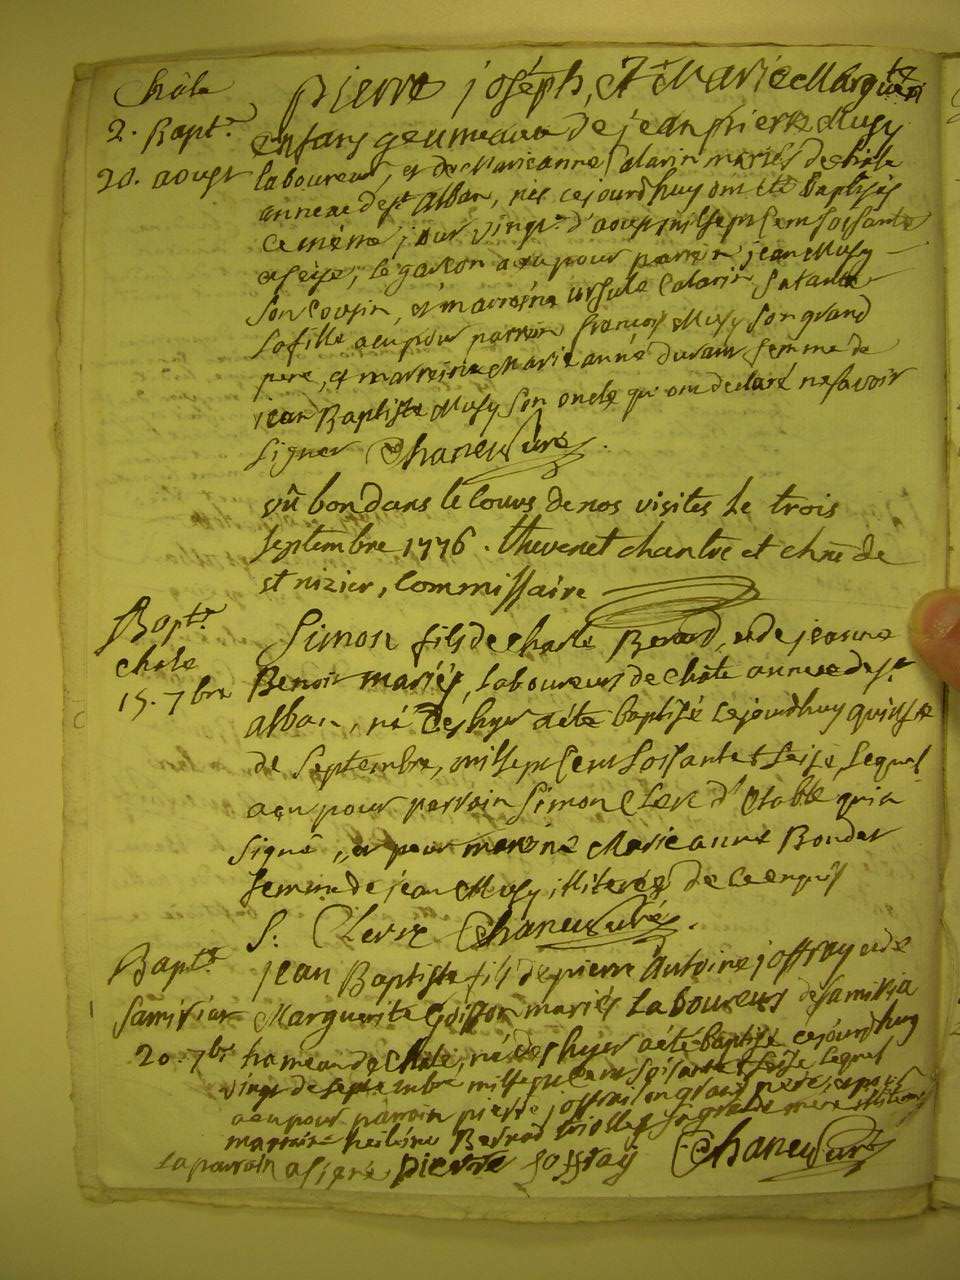 Châle
2. Bapt.e
20. aoust
pierre joseph, Et Marie Marguerite
enfans geumeaux de jean pierre Musy
laboureur, et de Marieanne Calarin mariés de châle
annexe de st alban, nés cejourdhuy ont été baptisés
ce même jour vingt d'aoust mil sept cent soissante
eseise, le garcon a eu pour parrain jean Musy
son cousin, et marreine ursule Calarin sa tante
la fille a eu pour parrain françois Musy son grand
pere, et marreine Marie anne durant femme de
jean Baptiste Musy son oncle qui ont declaré ne savoir
signer Chaneu Curé
vû bon dans le cours de nos visites le trois
septembre 1776. thevenet chantre et chne de
st nizier, commissaire
Bapt.e
châle
15. 7bre
Simon fils de charle Berod, et de jeanne
Benoit mariés, laboureurs de Châle annexe de st
alban, né dès hyer a été baptisé cejourdhuy quinse
de septembre, mil sept cent soissante et seise, lequel
a eu pour parrain simon Clerc d'Etable qui a
signé, et pour mareine Marie anne Bondet
femme de jean Musy illiterés de ce enquis
S. Clerc Chaneu curé.
Bapt.e
Samiviar
20. 7bre
jean Baptiste fils de pierre Antoine joffray et de
Marguerite Goiffon mariés Laboureurs de samivia
hameau de Châle, né dès hyer a été baptisé cejourdhuy
vingt de septembre mil sept cent soisante et seise lequel
a eu pour parrain pierre joffrai son grand pere, et pour
marraine Berod sa grande mere
le parrain a signé pierre joffray Chaneu Curé